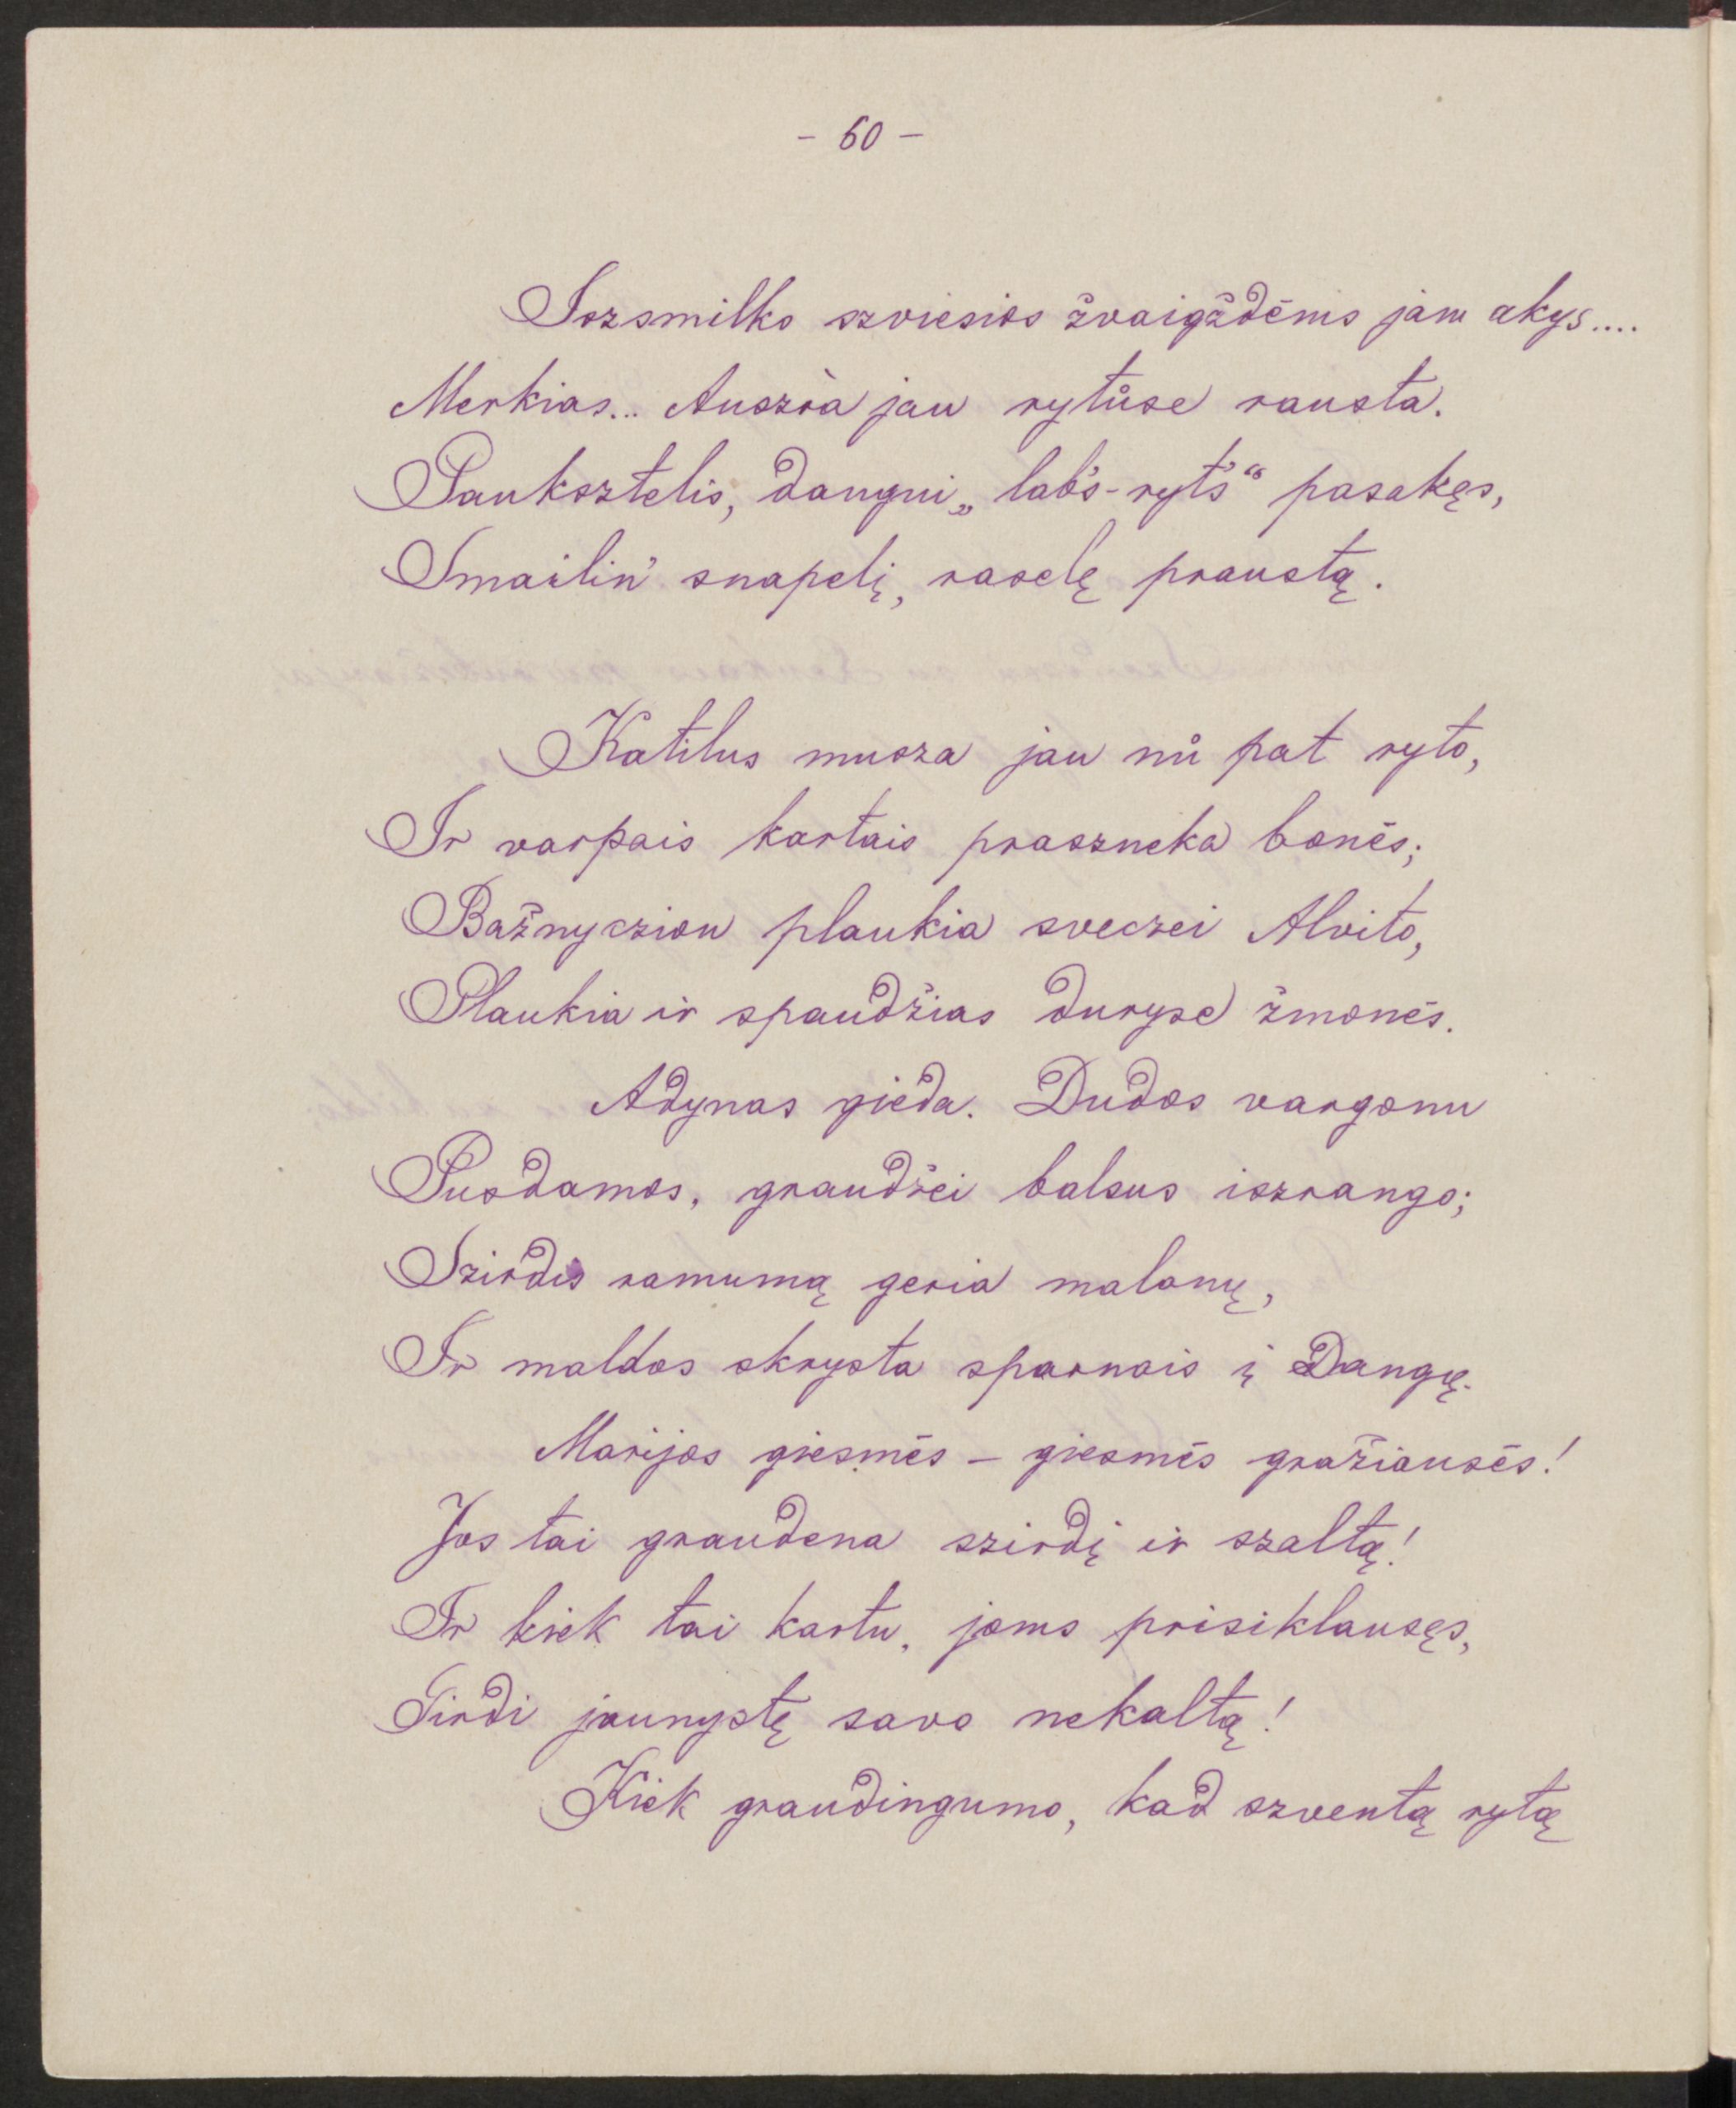 - 60 -
Iszsmilko szviesios žvaigždėms jam akys....
Merkias... Auszra jau rytůse rausta.
Paukosztelis, dangui „labs-ryts“ pasakęs,
Smailin' snapelį, raselę praustą.
Katilus musza jau nů pat ryto,
Ir varpais kartais praszneka bonės;
Bažnyczion plaukia sveczei Alvito,
Plaukia ir spaudžias duryse žmonės.
Adynas gieda. Dudos vargonu
Pusdamos, graudžei balsus iszrango;
Szirdis ramumą geria malonų,
Ir maldos skrysta sparnais į Dangų.
Marijos giesmės – giesmės gražiausės!
Jos tai graudena szirdį ir szaltą!
Ir kiek tai kartu, joms prisiklausęs,
Girdi jaunystę savo nekaltą!
Kiek graudingumo, kad szventą rytą